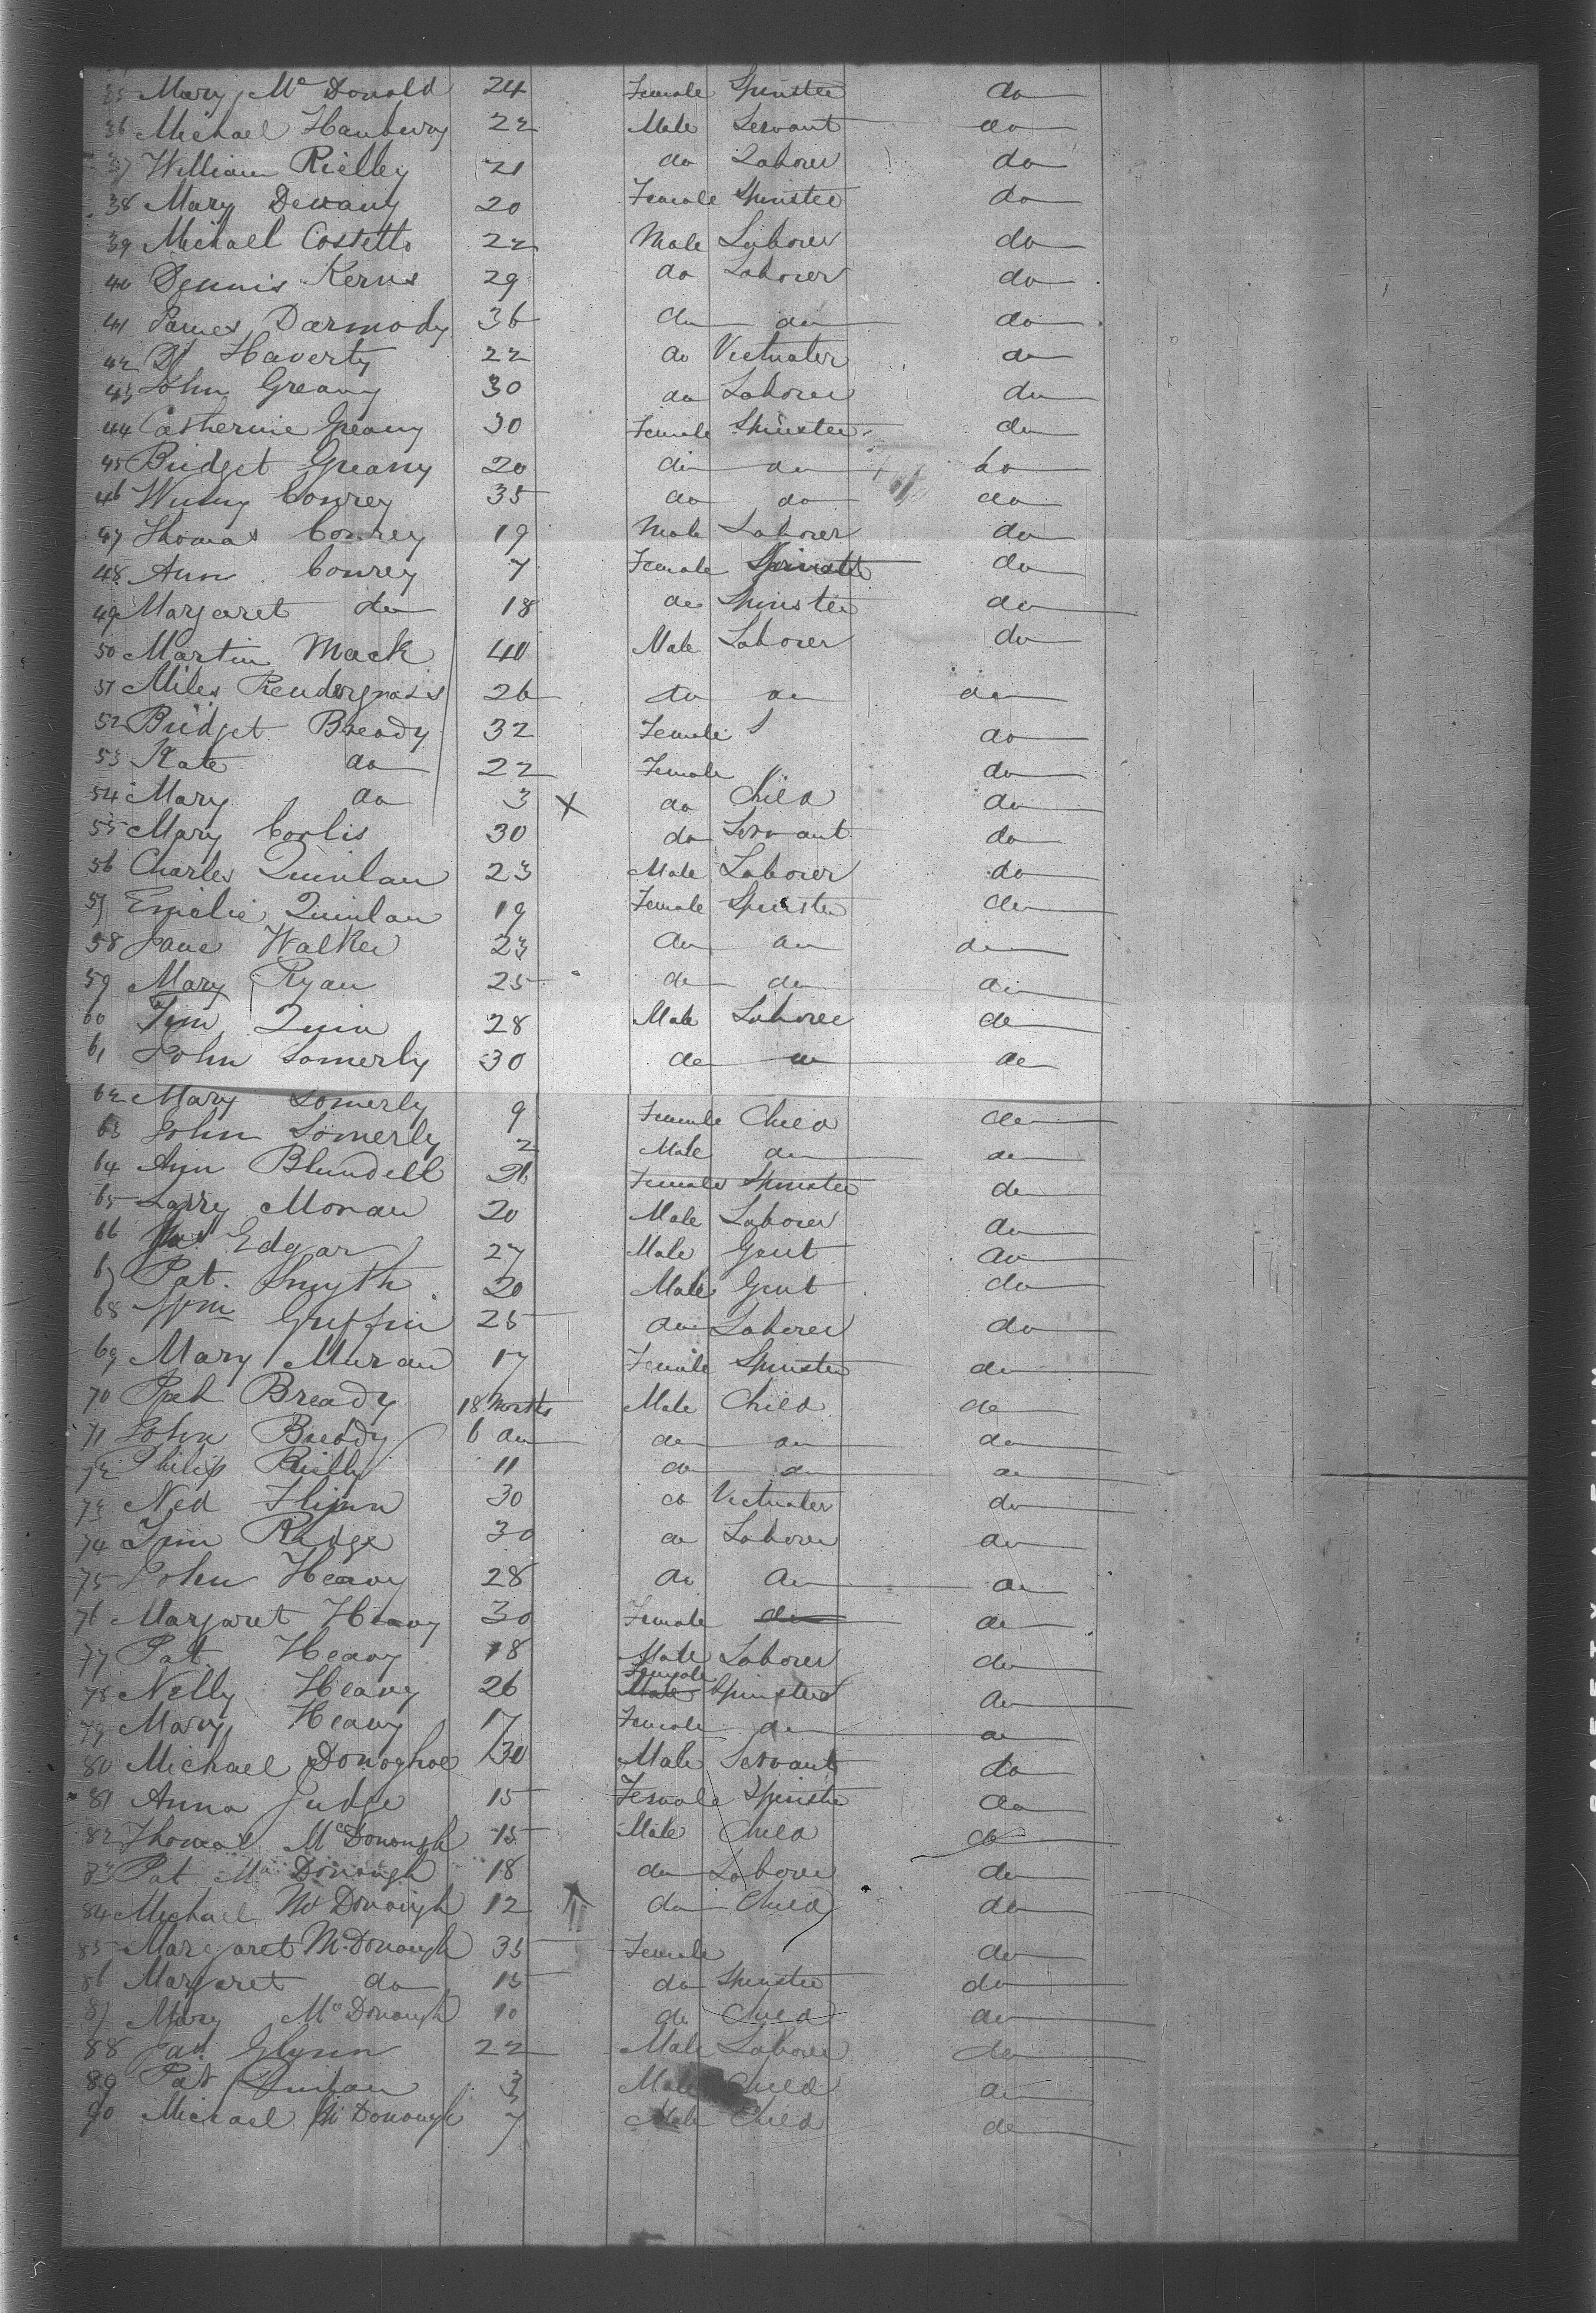 35 Mary Mc Donald 24 Female Spinster do
36 Michael Hanbury 22 Male Servant do
37 William Rielley 21 do Laborer do
38 Mary Devany 20 Female Spinster do
39 Michael Costello 22 Male Laborer do
40 Dennis Kerns 29 do Laborer do
41 James Darmody 36 do do do
42 Haverty 22 do Victualer do
43 John Greany 30 do Laborer do
44 Catherine Greany 30 Female Spinster do
45 Bridget Greany 20 do do do
46 Winny Conrey 35 do do do
47 Thomas Conrey 19 Male Laborer do
48 Ann Conrey 7 Female do
49 Margaret do 18 do Spinster do
50 Martin Mack 40 Male Laborer do
51 Miles Rendergrass 26 do do do
52 Bridget Bready 32 Female S do
53 Kate do 22 Female do
54 Mary do 3 X do Child do
55 Mary Corlis 30 do Servant do
56 Charles Quinlan 23 Male Laborer do
57 Emelie Quinlan 19 Female Spinster do
58 Jane Walker 23 do do do
59 Mary Ryan 25 do do do
60 Tim Quin 28 Male Laborer do
61 John Somerly 30 do do do
62 Mary Somerly 9 Female Child do
63 John Somerly 2 Male do do
64 Ann Blundell 26 Female Spinster do
65 Larry Moran 20 Male Laborer do
66 Jas Edgar 27 Male Gent do
67 Pat. Smyth 20 Male Gent do
68 Wm Griffin 25 do Laborer do
69 Mary Muran 17 Female Spinster do
70 Pat Bready 18 Months Male Child do
71 John Bready 6 do do do do
72 Philip Rielly 11 do do do
73 Ned Flynn 30 do Victualer do
74 Tim Radge 30 do Laborer do
75 John Heavy 28 do do do
76 Margaret Heavy 30 Female do do
77 Pat Heavy 18 Male Laborer do
78 Nelly Heavy 26 Male Female Spinster do
79 Mary Heavy 17 Female do do
80 Michael Donoghoe 30 Male Servant do
81 Anna Judge 15 Female Spinster do
82 Thomas McDonough 15 Male Child do
83 Pat Mc Donough 18 do Laborer do
84 Michael Mc Donough 12 do Child do
85 Margaret McDonough 35 Female do
86 Margaret do 15 do Spinster do
87 Mary Mc Donough 10 do Child do
88 Jas. Glynn 22 Male Laborer do
89 Pat Quinlan 3 Male Child do
90 Michael Mc Donough 7 Male Child do